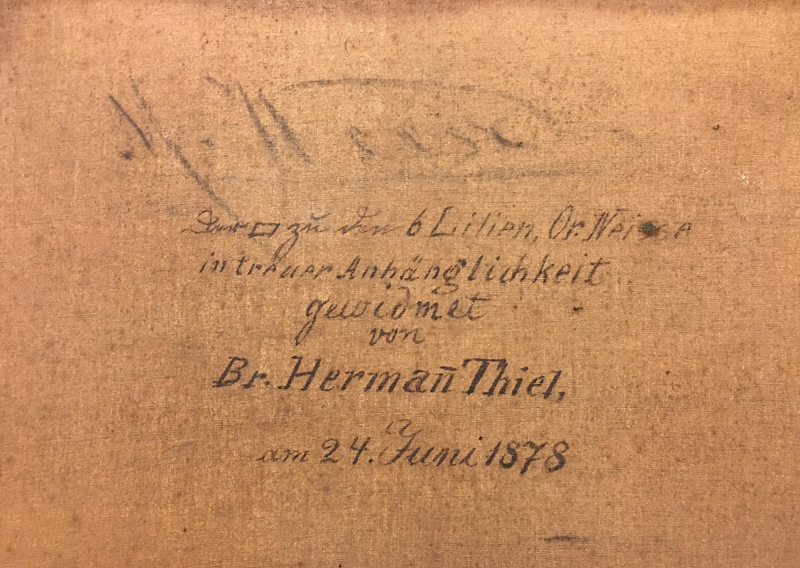 Der ▭ zu den 6 Lilien, Or. Neisse
in treuer Anhänglichkeit
gewidmet
von
Br. Herman̄ Thiel,
am 24. Juni 1878